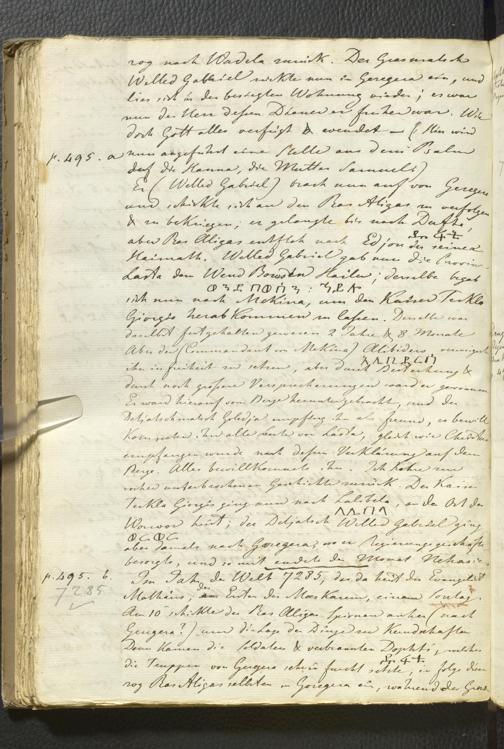 zog nach Wadela zurück. Der Grasmatsch
Welled Gabriel rückte nun in Geregera ein, und
lies sich in der besiegten Wohnung nieder; es war
nun der Herr dessen Diener er früher war. Wie
doch Gott alles verfügt & wendet — (Hier wird
p. 495. a nun angeführt eine Stelle aus dem Psalm
der Hanna, die Mutter Samuels)
Er (Welled Gabriel) brach nun auf von Geregera
und schickte sich an den Ras Aligas zu verfolgen
& zu bekriegen; er gelangte bis nach
aber Ras Aligas entfloh nach Edjou der seiner
Heimath. Welled Gabriel gab nun die Provinz
Lasta dem Wend Bowsen Hailu; derselbe begab
ወንድ በወሰን : ኃይሉ
sich nun nach Mekina, um den Kaiser Teklo
Giorgis herab kommen zu lassen. Derselbe war
daselbst festgehalten gewesen 2 Jahre & 8 Monate
Aber der (Commandant von Mekina)
ihn in freiheit zu setzen, aber durch Bestechung &
durch noch grosse Versprechungen ward er gewonnen
Er ward hierauf vom Berge herunter gebracht, und der
empfing ihn als freund, es bewill
kommneten ihn alle Leute von Lasta, gleich wie
empfangen wurde nach dessen Verklärung auf dem
Berge. Alles bewillkommnete ihn. Ich kehre zur
vorher unterbrochenen Geschichte zurück. Der Kaiser
Teklo Giorgis ging nun nach Lalibela, an den Ort der
ላሊበላ
Worwor heist; der Dedjatsch Welled Gabriel ging
ወርወር
aber damals nach Geregera, wo er Regierungsgeschäfte
besorgte, und so mit endete der Monat Nehasie
p. 495. b. Im Jahr der Welt 7285, der da heist des Evangelist
7285 Mathäus, am Ersten des Maskarem, einem Sontag
Am 10 schickte der Ras Aligas Spionen aus (nach
Geregera?) um die Lage der Dinge zu Kundschaften
Dann kamen die Soldaten & verbrannten welches
die Truppen von Geregera sehr in furcht setzte, in folge dessen
zog Ras Aligas selbsten in Geregera ein, während der Gras